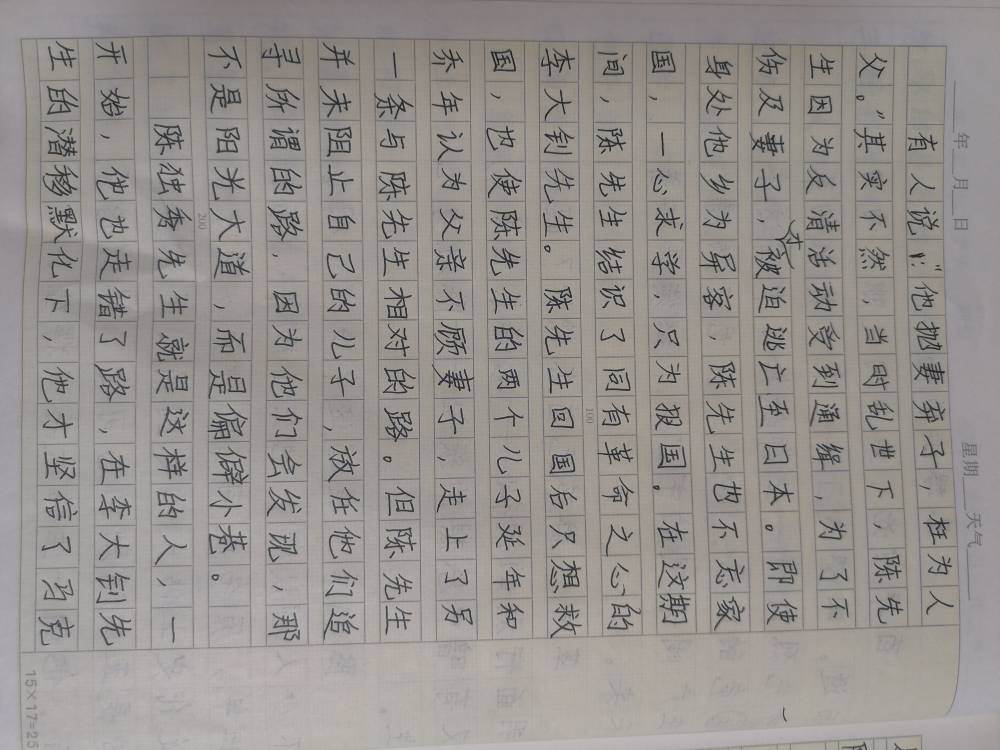 年 月 日
星期 天气
有人说:“他抛妻弃子,枉为人
父。”其实不然,当时乱世下,陈先
生因为反清活动受到通缉,为了不
伤及妻子,才被迫逃亡至日本。即使
身处他乡为异客,陈先生也不忘家
国,一心求学,只为报国。在这期
间,陈先生结识了同有革命之心的
李大钊先生。陈先生回国后只想救
国,也使陈先生的两个儿子延年和
乔年认为父亲不顾妻子,走上了另
一条与陈先生相对的路。但陈先生
并未阻止自己的儿子,放任他们追
寻所谓的路,因为他们会发现,那
不是阳光大道,而是偏僻小巷。
陈独秀先生就是这样的人,一
开始,他也走错了路,在李大钊先
生的潜移默化下,他才坚信了马克
100
200
15×17=25